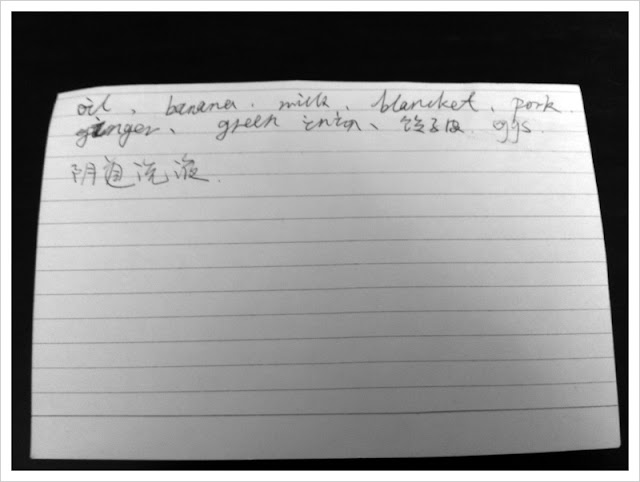 oil、banana、milk、blancket、pork
ginger、green inion、饺子皮 ggs.
阴道洗液.